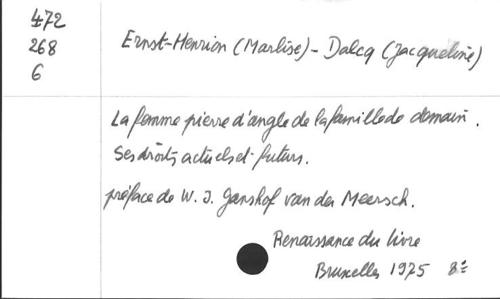 472
268
6
Ernst-Henrion (Marlise) - Dalcq (Jacqueline)
La femme pierre d'angle de la famille de demain.
Ses droits actuels et futurs.
préface de W. J. Ganshof van der Meersch.
Renaissance du livre
Bruxelles 1975 8°